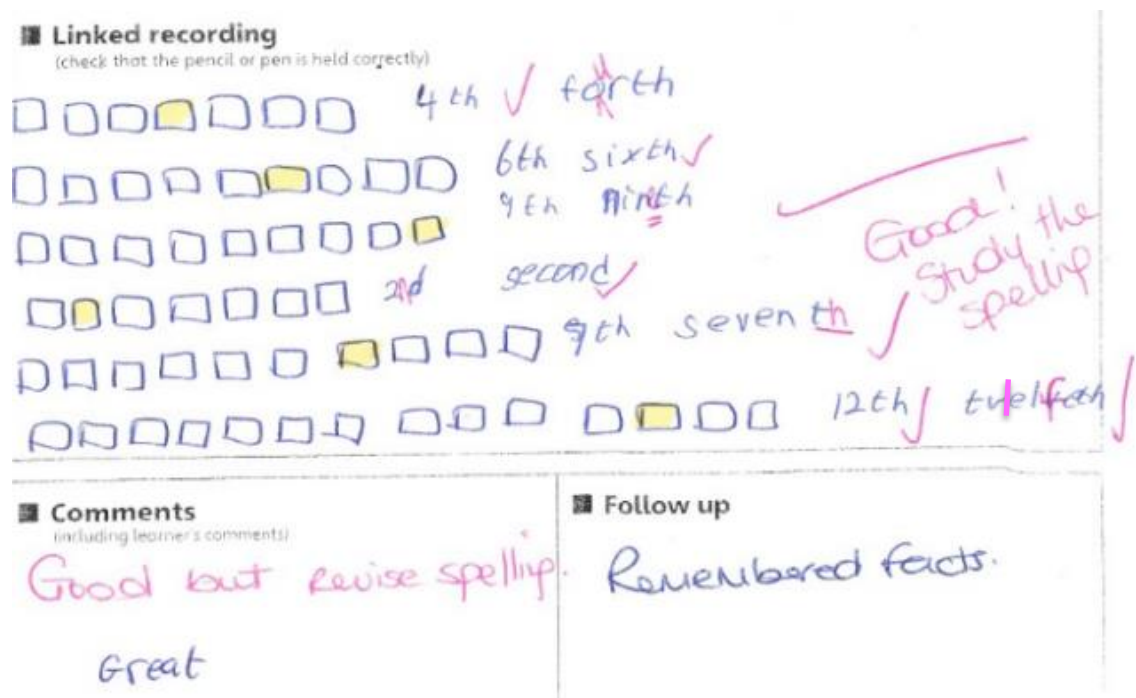 Linked recording
(check that the pencil or pen is held correctly)
4th forth
6th sixth
9th ninth
2nd second
9th seventh
12th
Good!
Study the
spelling
Comments
(including learner's comments)
Good but revise spelling.
Great
Follow up
Remembered facts.